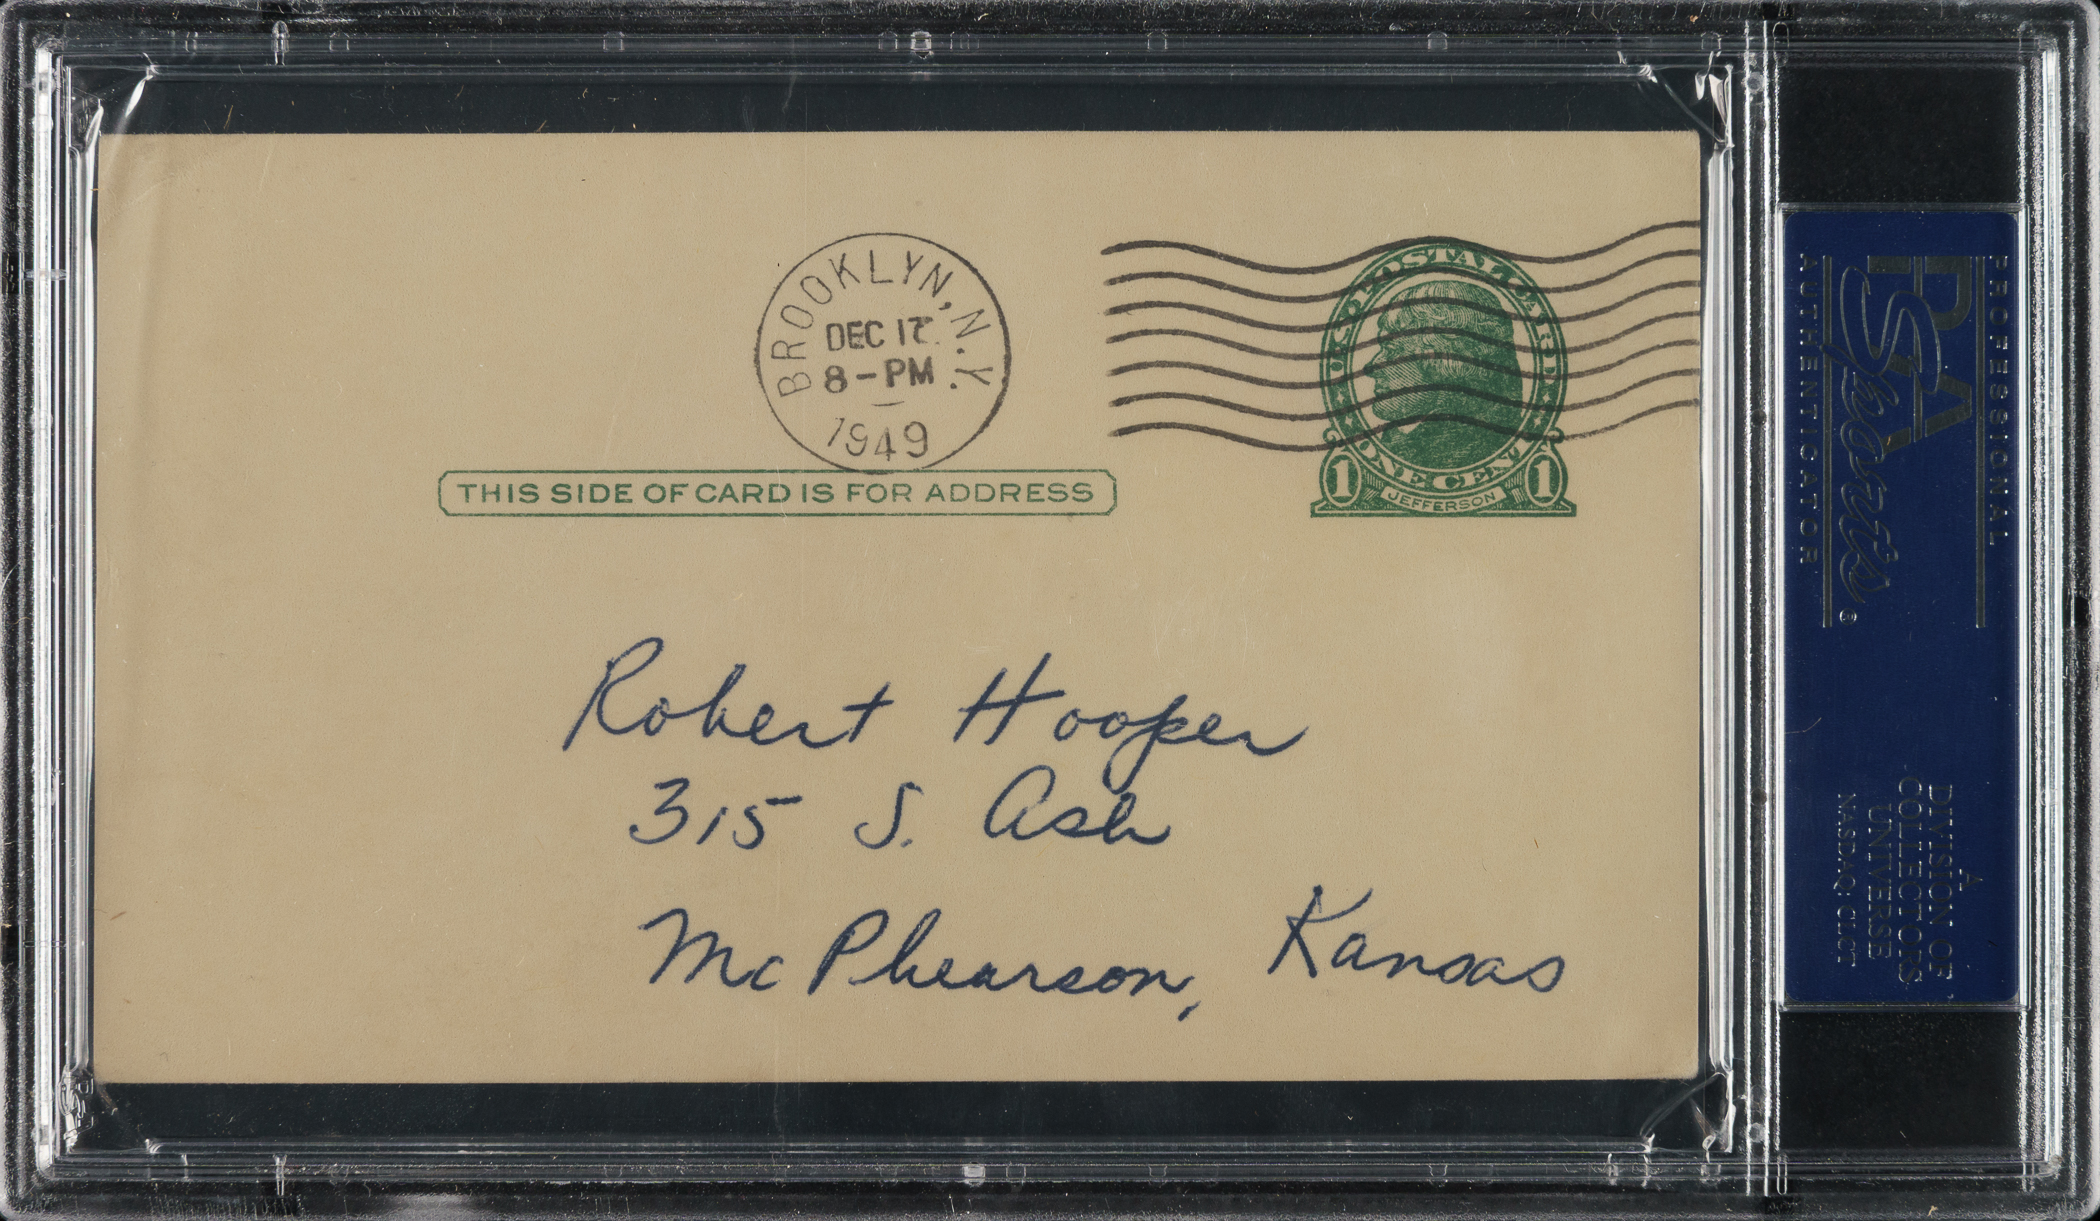 BROOKLYN, N.Y.
DEC 17
8-PM
1949
U.S. POSTAL CARD
ONE CENT
1 JEFFERSON 1
THIS SIDE OF CARD IS FOR ADDRESS
Robert Hooper
315 S. Ash
McPhearson, Kansas
PROFESSIONAL
PSA
Sports®
AUTHENTICATOR
A
DIVISION OF
COLLECTORS
UNIVERSE
NASDAQ: CLCT